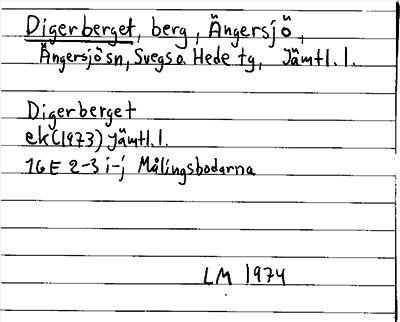 Digerberget, berg, Ängersjö,
Ängersjö sn, Svegs o. Hede tg, Jämtl. l.
Digerberget
ek (1973) Jämtl. l.
16 E 2-3 i-j Målingsbodarna
LM 1974